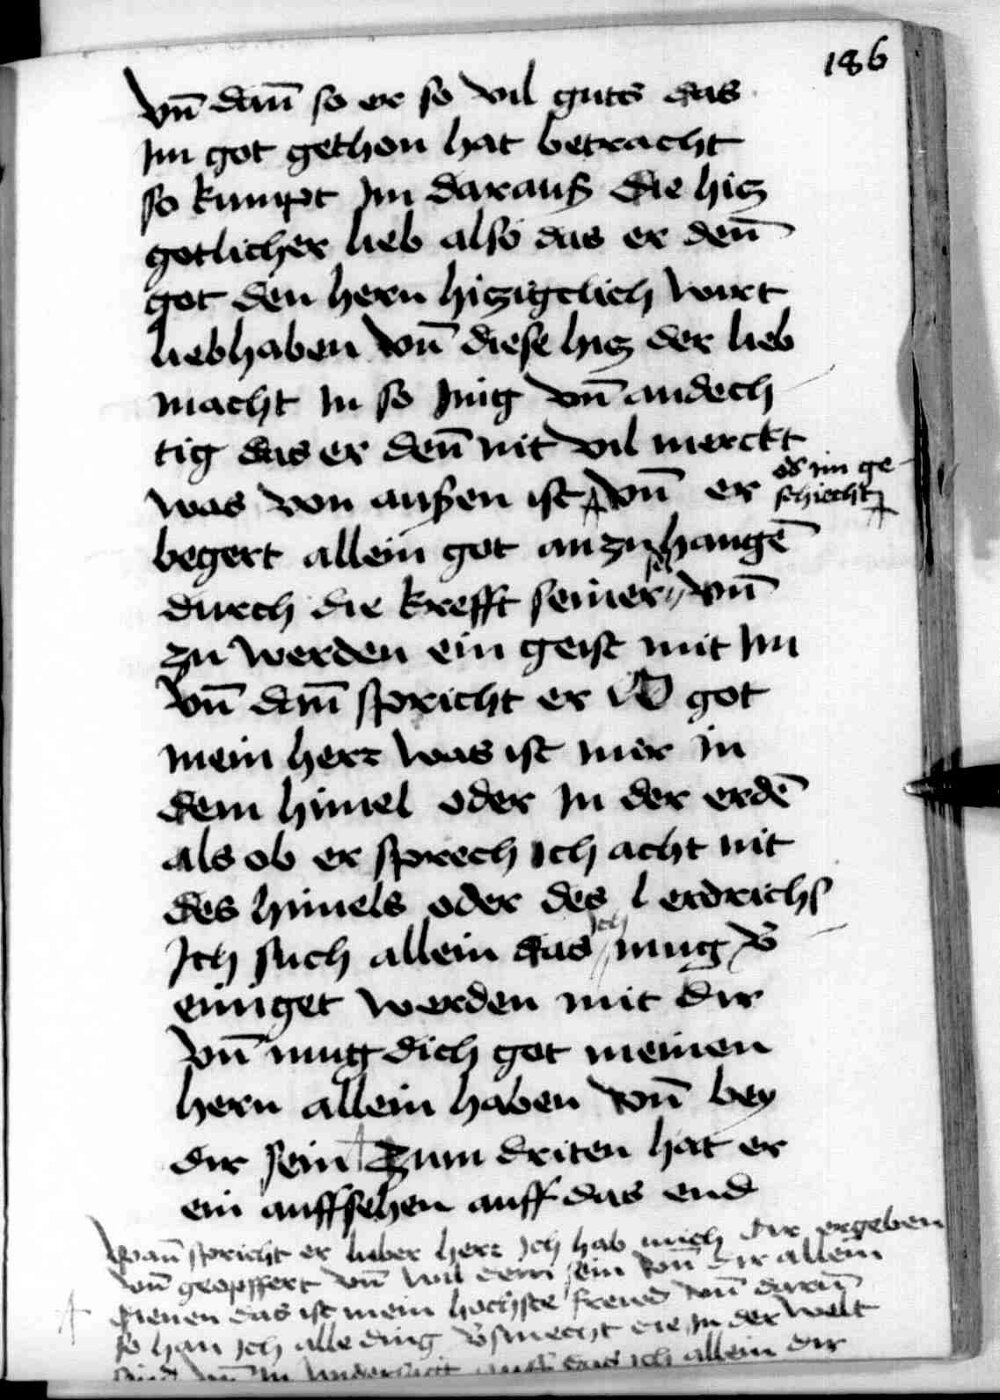 186
vn̄ dan̄ so er so vil guts das
Im got gethon hat betracht
so kumpt Im darauß die hitz
gotlicher lieb also das er den̄
got den hern hitzigclich wirt
liebhaben vn̄ diese hitz der lieb
macht In so Inig vn̄ andech
tig das er den̄ nit vil merckt
was von außen ist vn̄ er
od im ge
schiecht
begert allein got anzuhangē
durch die krefft seiner sel vn̄
zu werden ein geist mit Im
vn̄ dan̄ spricht er O got
mein herr was ist mer in
dem himel oder In der erdē
als ob er sprech Ich acht nit
des himels oder des erdrichs
Ich such allein das ich mug v̄
einiget werden mit dir
vn̄ mug dich got meinen
hern allein haben vn̄ bey
dir sein Zum driten hat er
ein auffsehen auff das end
wan̄ spricht er liber herr Ich hab mich dir ergeben
vn̄ geopffert vn̄ wil dein sein vn̄ dir allein
dienen das ist mein hochste freud vn̄ darum̄
so han Ich alle ding v̄smecht die In der welt
sind vn̄ In das ich allein dir